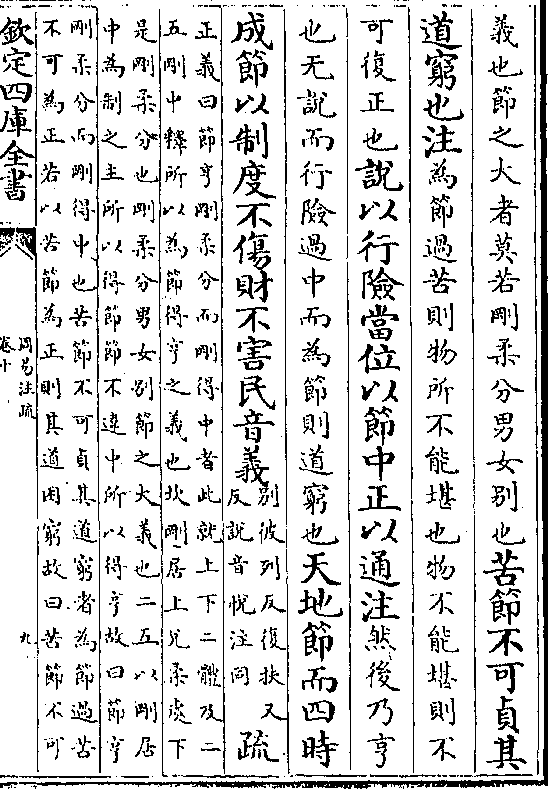 義也節之大者莫若剛柔分男女别也苦節不可貞其
道窮也注為節過苦則物所不能堪也物不能堪則不
可復正也說以行險當位以節中正以通注然後乃亨
也无說而行險過中而為節則道窮也天地節而四時
成節以制度不傷財不害民音義别彼列反復扶又
反說音悅注同疏
正義曰節亨剛柔分而剛得中者此就上下二體及二
五剛中釋所以為節得亨之義也坎剛居上兌柔處下
是剛柔分也剛柔分男女别節之大義也二五以剛居
中為制之主所以得節節不違中所以得亨故曰節亨
剛柔分而剛得中也苦節不可貞其道窮者為節過苦
不可為正若以苦節為正則其道困窮故曰苦節不可
欽定四庫全書
周易注疏
卷十
九